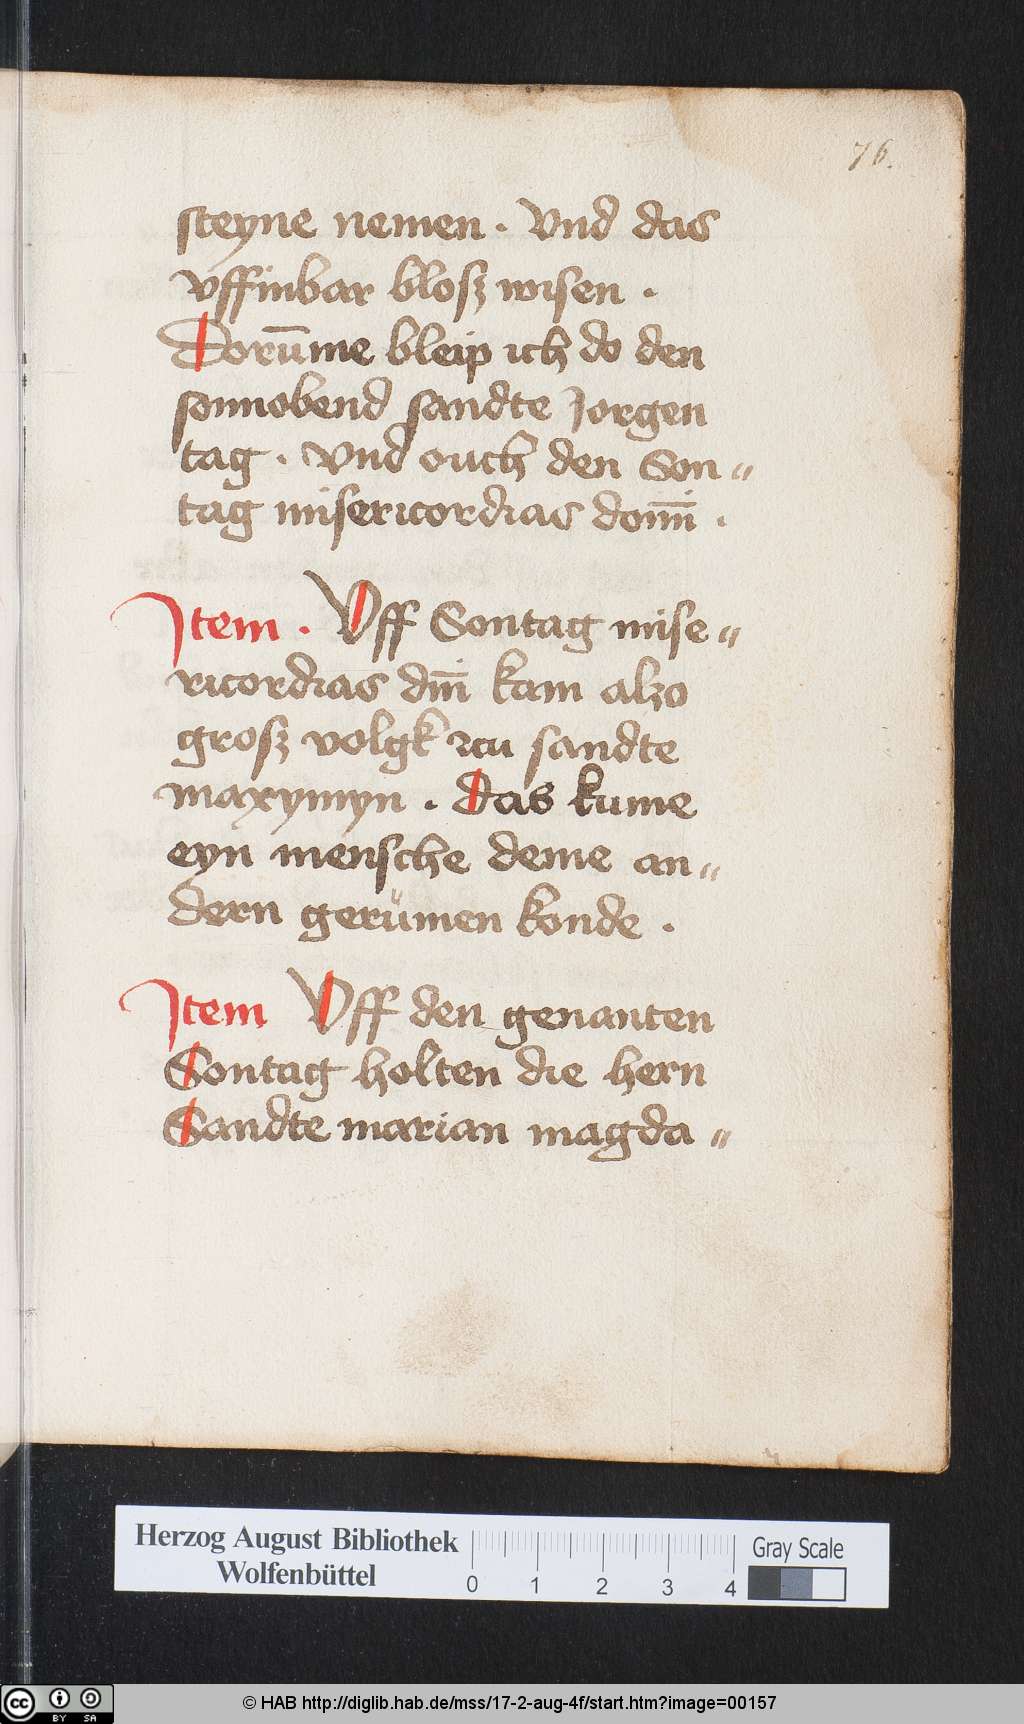 76.
steyne nemen . vnd das
vffinbar blosz wisen .
Dorūme bleip ich do den
sonnobend sandte Jorgen
tag . vnd ouch den Son〃
tag misericordias dom̄i .
Item . Vff Sontag mise〃
ricordias dn̄i kam alzo
grosz volgk zcu sandte
maxymyn . das kume
eyn mensche deme an〃
dern gerümen konde .
Item Vff den genanten
Sontag holten die hern
Sandte marian magda〃
Herzog August Bibliothek
Wolfenbüttel
0 1 2 3 4
Gray Scale
cc BY SA
© HAB http://diglib.hab.de/mss/17-2-aug-4f/start.htm?image=00157